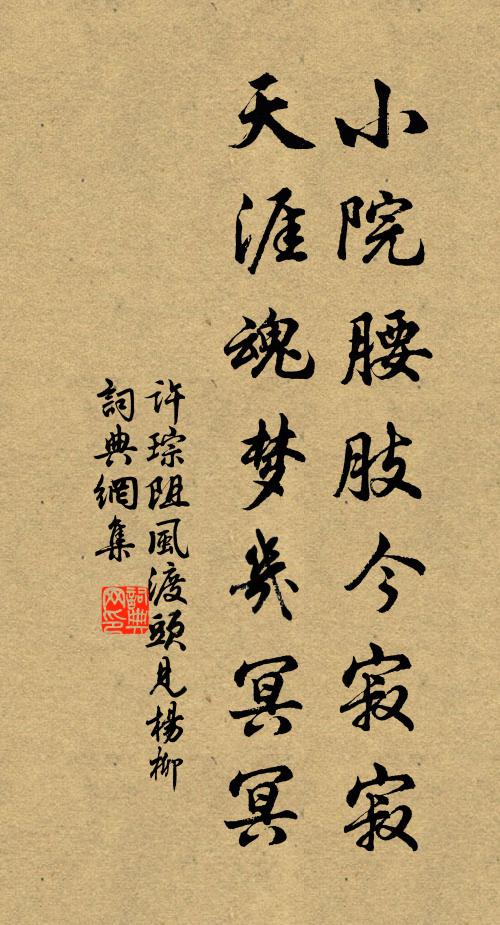 小院腰肢今寂寂
天涯魂梦幾冥冥
許琮阻風渡頭見楊柳
詞典網集
詞典網印